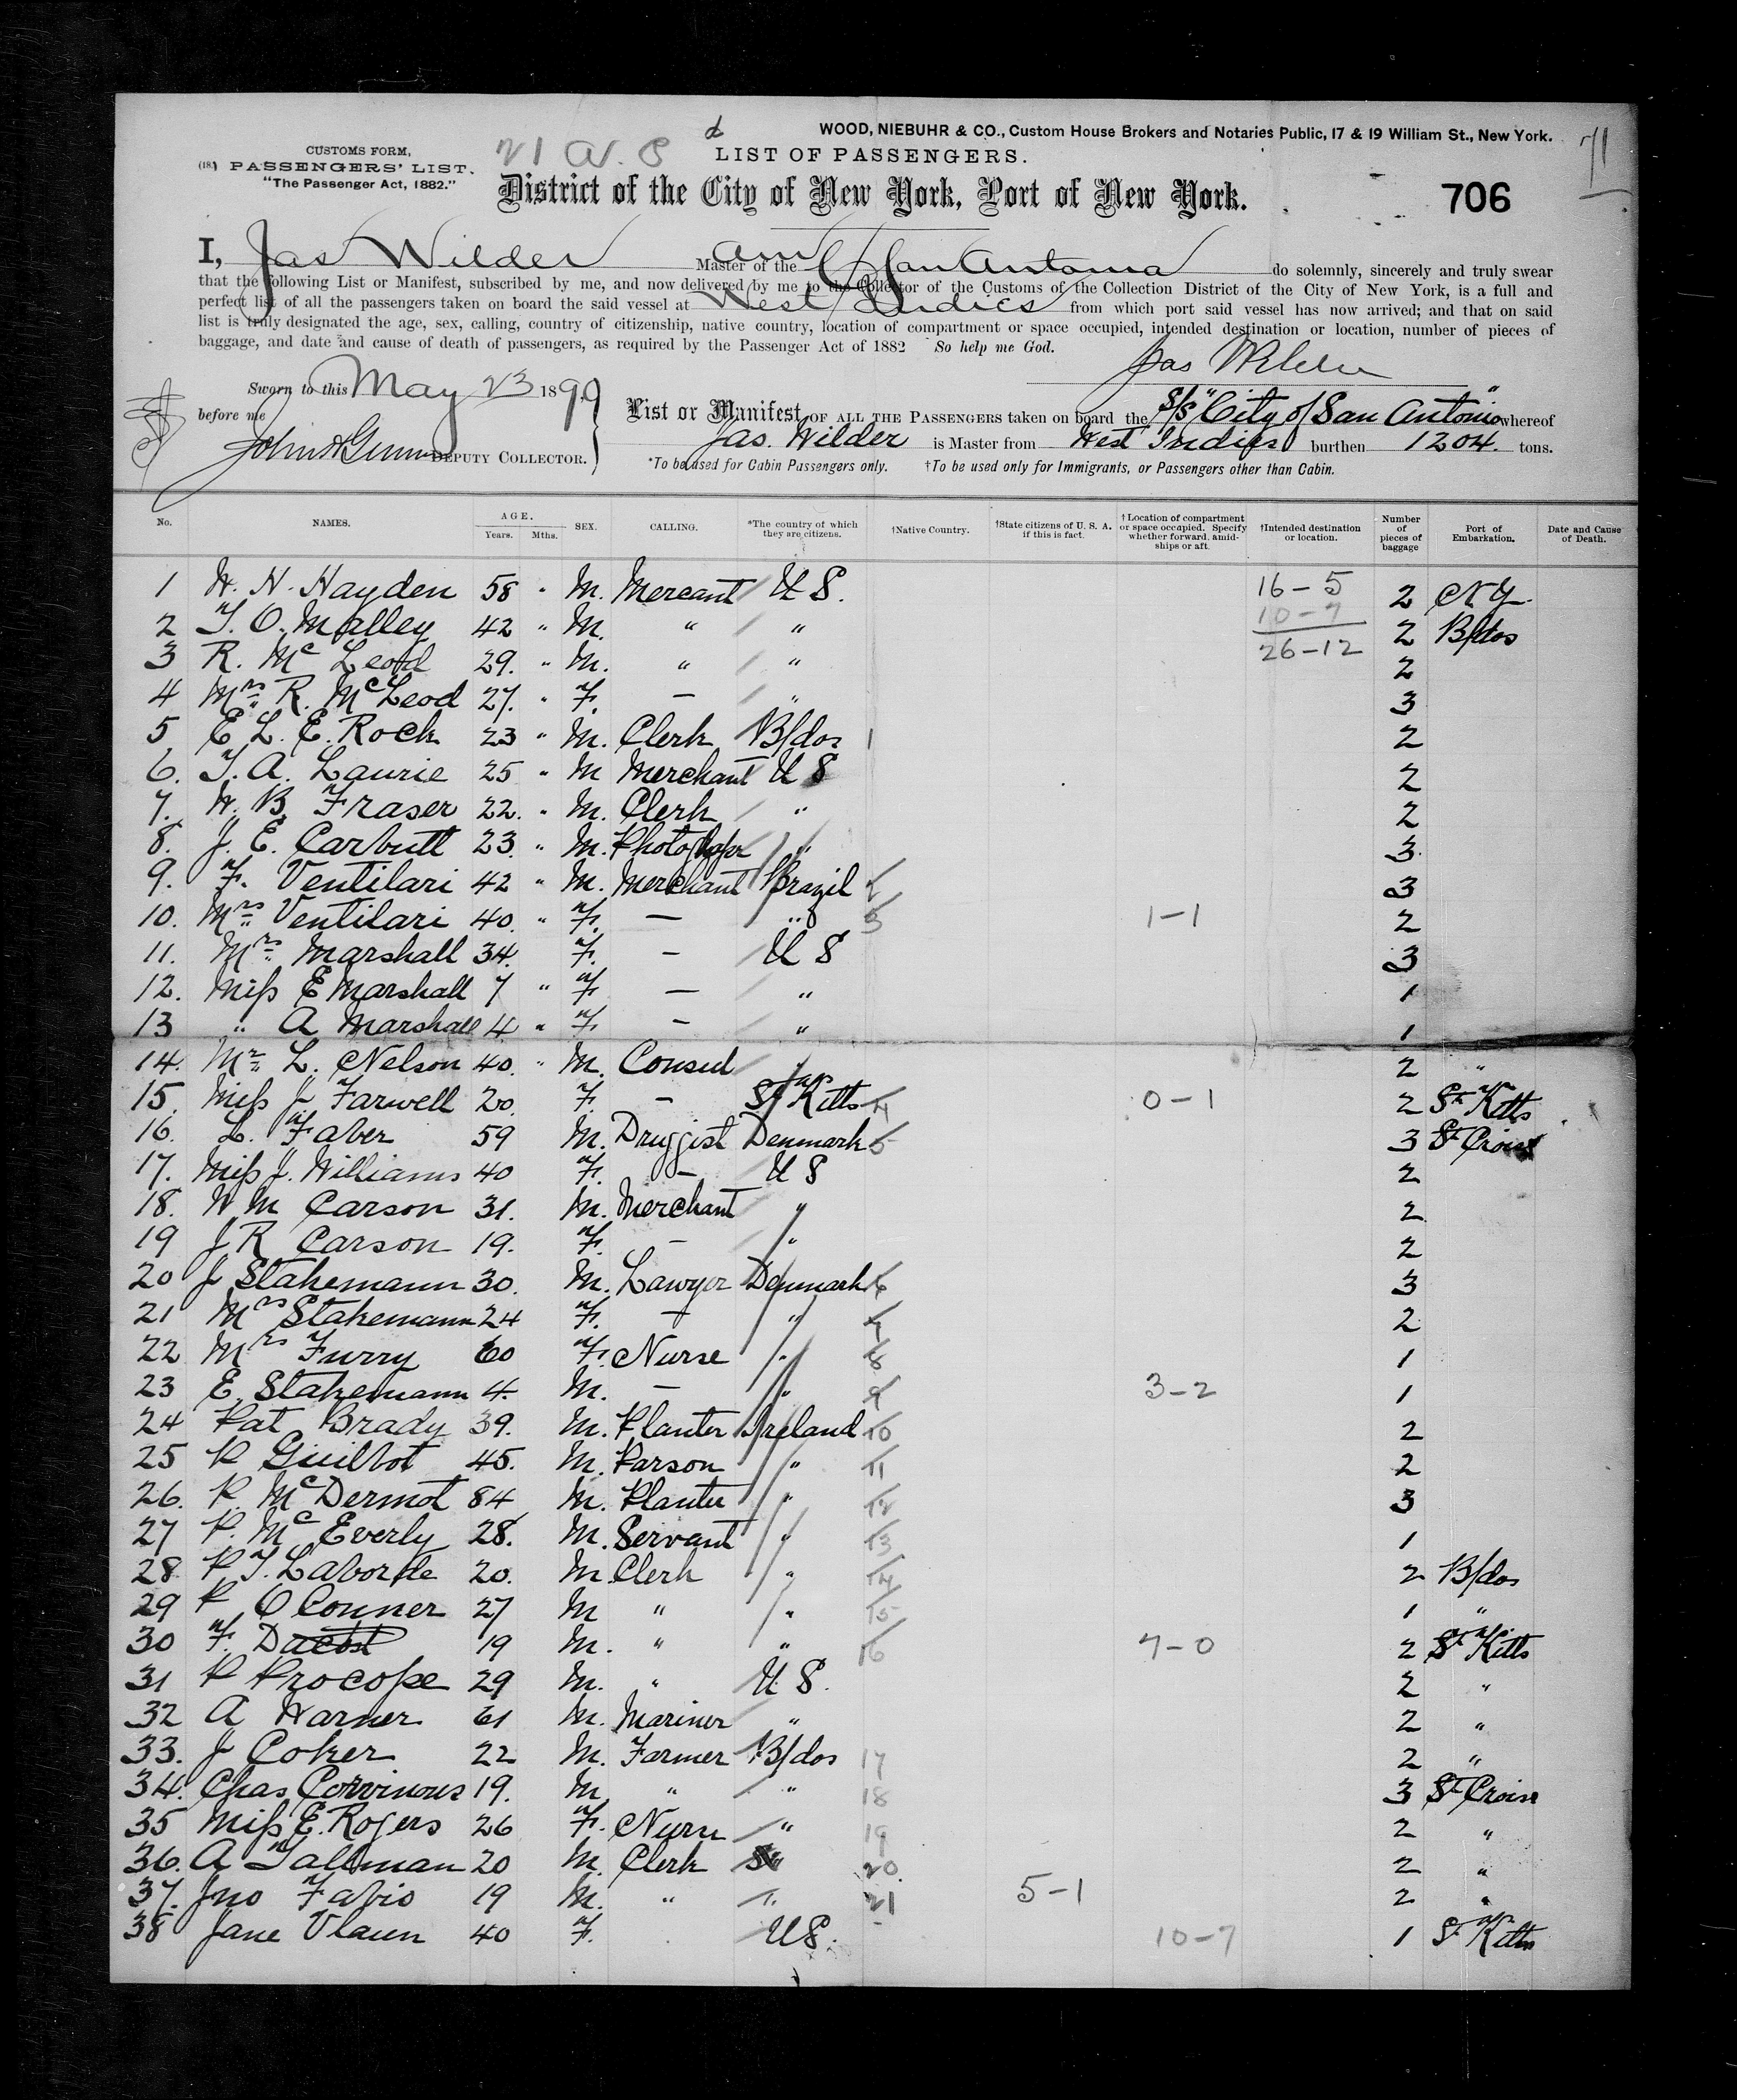 WOOD, NIEBUHR & CO., Custom House Brokers and Notaries Public, 17 & 19 William St., New York.
71
CUSTOMS FORM,
(18) PASSENGERS' LIST.
"The Passenger Act, 1882."
LIST OF PASSENGERS.
District of the City of New York, Port of New York.
706
I, Jas Wilder Master of the Am San Antonia do solemnly, sincerely and truly swear
that the following List or Manifest, subscribed by me, and now delivered by me to the Collector of the Customs of the Collection District of the City of New York, is a full and
perfect list of all the passengers taken on board the said vessel at West Indies from which port said vessel has now arrived; and that on said
list is truly designated the age, sex, calling, country of citizenship, native country, location of compartment or space occupied, intended destination or location, number of pieces of
baggage, and date and cause of death of passengers, as required by the Passenger Act of 1882 So help me God.
Jas Wilder
Sworn to this May 23 1890
before me
DEPUTY COLLECTOR.
List or Manifest OF ALL THE PASSENGERS taken on board the S/S "City of San Antonio" whereof
Jas. Wilder is Master from West Indies burthen 1204. tons.
*To be used for Cabin Passengers only. †To be used only for Immigrants, or Passengers other than Cabin.
No. NAMES. AGE. Years. Mths. SEX. CALLING. *The country of which they are citizens. †Native Country. †State citizens of U. S. A. if this is fact. †Location of compartment or space occupied. Specify whether forward, amidships or aft. †Intended destination or location. Number of pieces of baggage Port of Embarkation. Date and Cause of Death.
1 W. N. Hayden 58 " M. Mercant U S. 16-5 2 N Y
2 T. O. Malley 42 " M. " " 10-7 2 B/dos
3 R. Mc Leod 29. " M. " " 26-12 2
4 Mrs R. McLeod 27. " F. — " 3
5 E L. E. Rock 23 " M. Clerk B/dos 1 2
6. T. A. Laurie 25 " M Merchant U S 2
7. W. B. Fraser 22. " M. Clerk " 2
8. J. E. Carbutt 23. " M. " 3
9. F. Ventilari 42 " M. Merchant Brazil 2 3
10. Mrs Ventilari 40. " F. — " 3 1-1 2
11. Mrs Marshall 34. F. — U S 3
12. Miss E Marshall 7 " F. — " 1
13 " A Marshall 4 " F. — " 1
14. Mr L. Nelson 40. " M. Consul " 2 "
15. Miss J Farwell 20. F. — St Kitts 4 0-1 2 St Kitts
16. L. Faber 59 M. Druggist Denmark 5 3 St Croix
17. Miss J. Williams 40 F. — U S 2
18. W M Carson 31. M. Merchant " 2
19 J R Carson 19. F. — " 2
20 J Stakemann 30. M. Lawyer Denmark 6 3
21 Mrs Stakemann 24 F. — " 7 2
22 Mrs Furry 60 F. Nurse " 8 1
23 E. Stakemann 4. M. — " 9 3-2 1
24 Pat Brady 39. M. Planter Ireland 10 2
25 P Guilbot 45. M. Parson " 11 2
26. P. McDermot 84 M. Planter " 12 3
27 P. Mc Everly 28. M. Servant " 13 1
28 P T. Laborde 20. M. Clerk " 14 2 B/dos
29 P O Conner 27 M " " 15 1 "
30 F. 19 M. " " 16 7-0 2 St Kitts
31 P Procope 29 M. " U S. 2 "
32 A Warner 61 M. Mariner " 2 "
33. J Coker 22 M. Farmer B/dos 17 2 "
34. Chas Corvinous 19. M " " 18 3 St Croix
35 Miss E. Rogers 26 F. Nurse " 19 2 "
36. A Tallman 20 M. Clerk " 20. 2 "
37. Jno Fabio 19 M. " " 21 5-1 2 "
38 Jane Vlaun 40 F. U S. 10-7 1 St Kitts